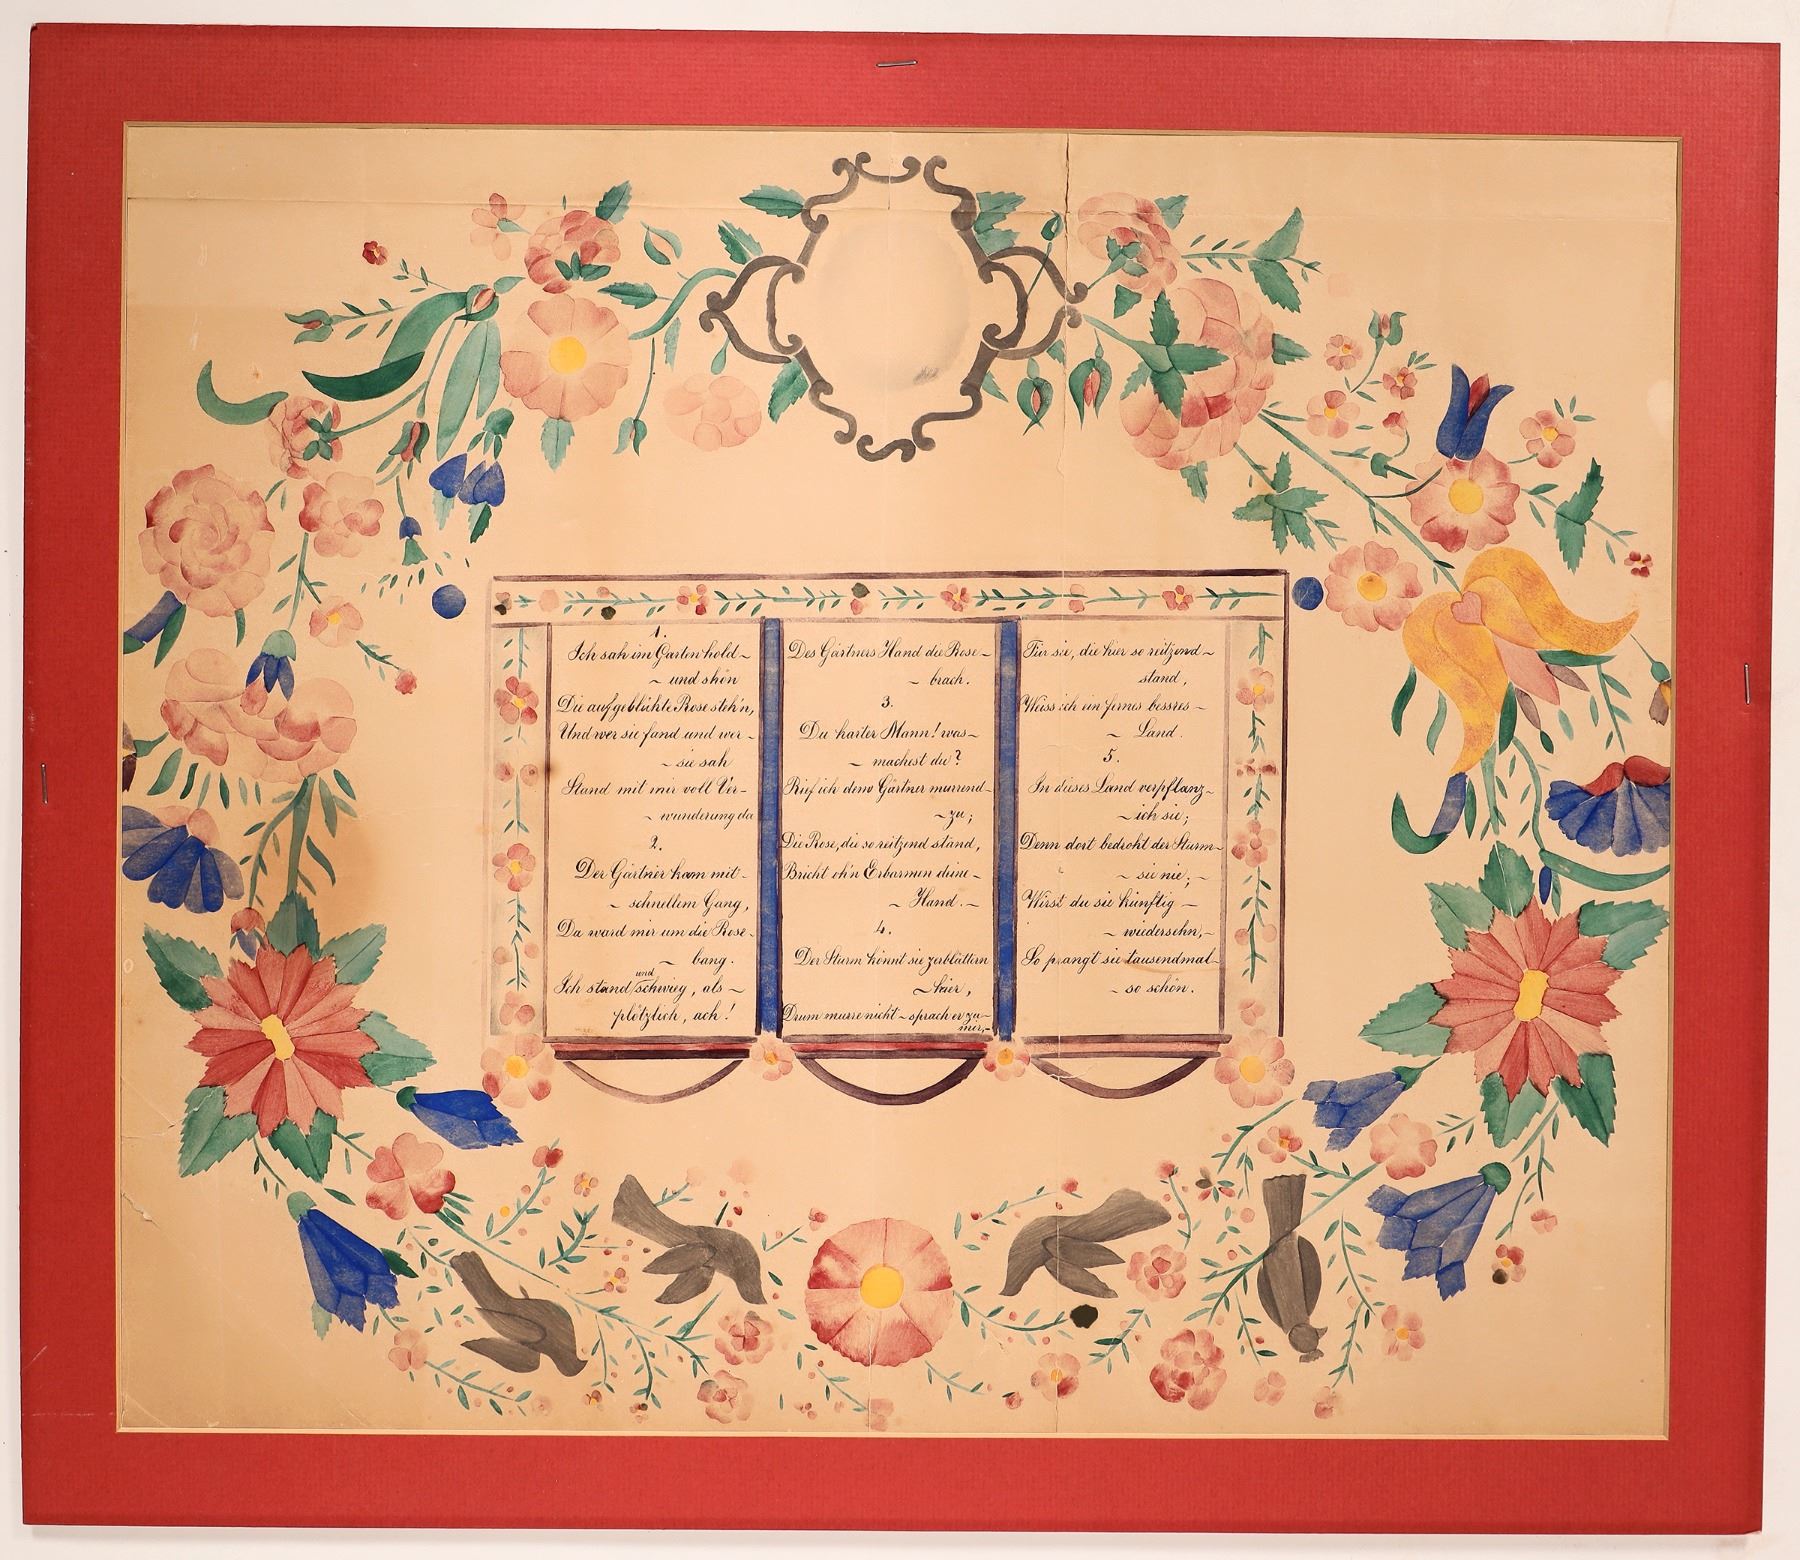 1.
Ich sah im Garten hold~
~ und shön
Die aufgeblühte Rose steh'n,
Und wer sie fand und wer -
~ sie sah
Stand mit mir voll Ver-
~ wunderung da
2.
Der Gärtner kam mit -
~ schnellem Gang,
Da ward mir um die Rose -
~ bang.
und
Ich stand schwieg, als ~
plötzlich, ach!
Des Gärtners Hand die Rose ~
~ brach.
3.
Du harter Mann! was ~
~ machest du?
Rief ich dem Gärtner murrend-
~ zu;
Die Rose, die so reitzend stand,
Bricht oh'n Erbarmen deine ~
~ Hand. ~
4.
Der Sturm könnt sie zerblättern
~ hier,
Drum murre nicht ~ sprach er zu ~
mir, ~
Für sie, die hier so reitzend ~
stand,
Weiss ich ein fernes bessres ~
~ Land.
5.
In dieses Land verpflanz ~
~ ich sie;
Denn dort bedroht der Sturm ~
~ sie nie; ~
Wirst du sie künftig ~
~ wiedersehn, ~
So prangt sie tausendmal ~
~ so schön.